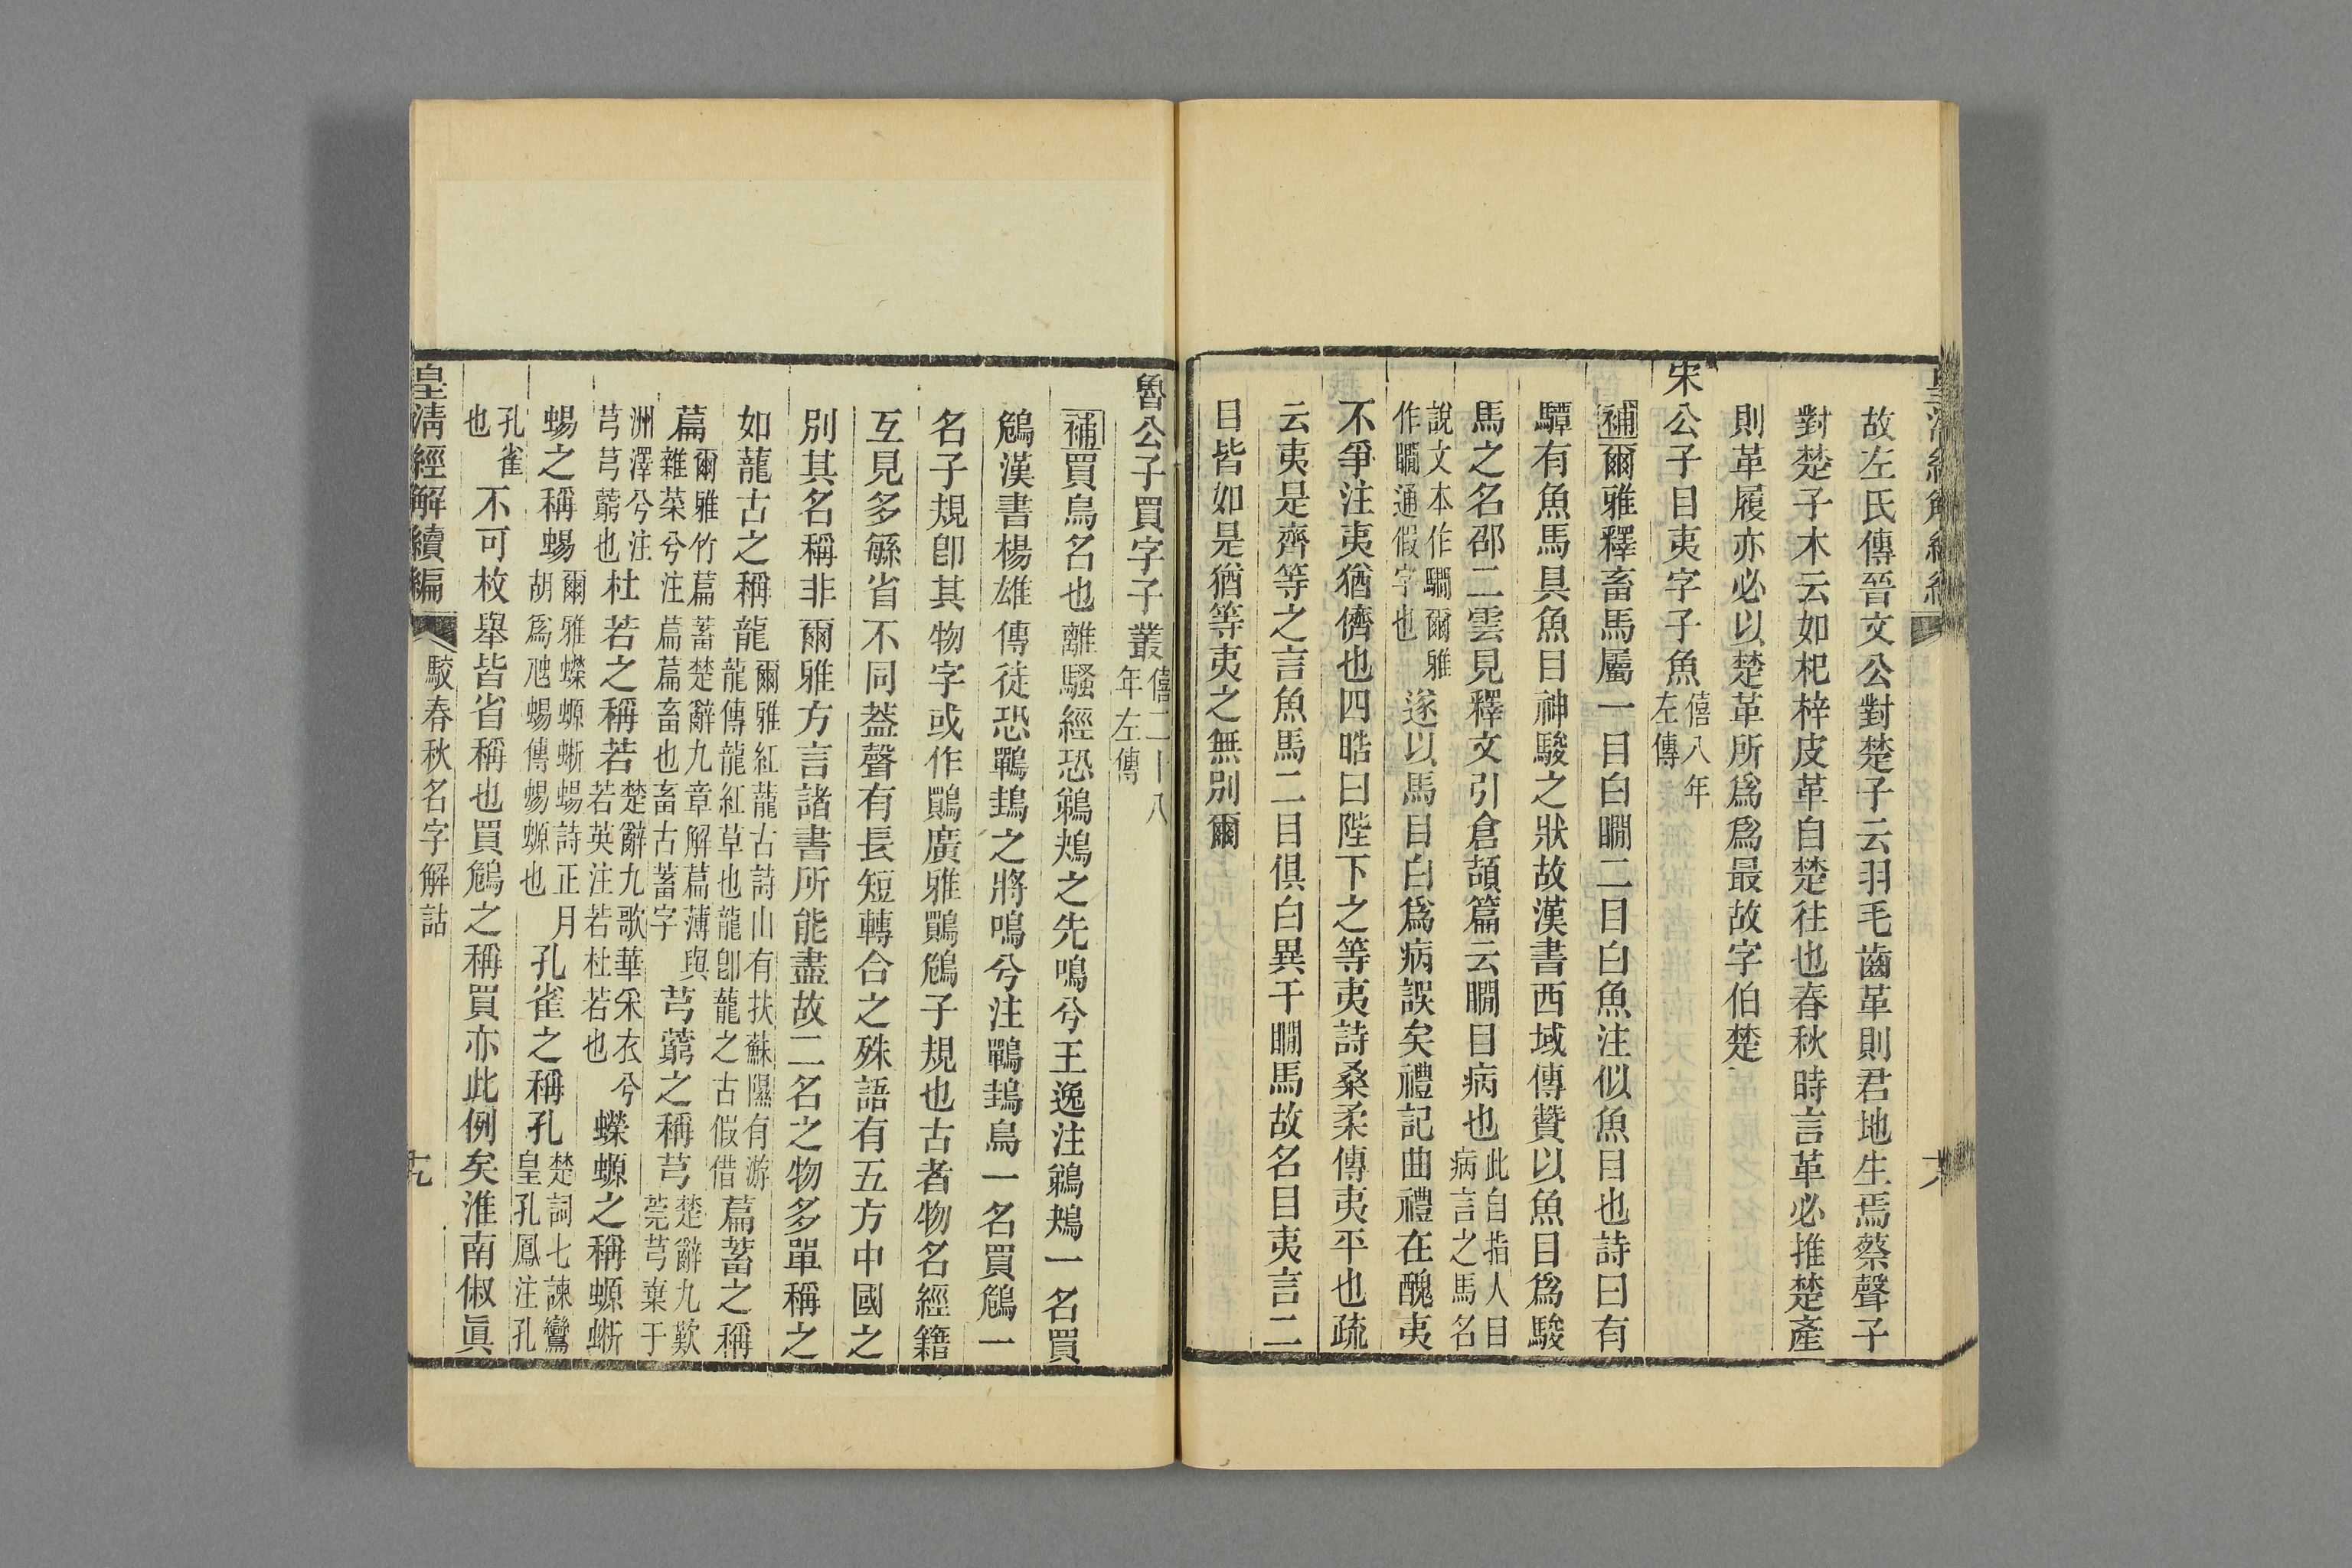 故左氏傳晉文公對楚子云羽毛齒革則君地生焉蔡聲子
對楚子木云如杞梓皮革自楚往也春秋時言革必推楚產
則革履亦必以楚革所爲爲最故字伯楚
宋公子目夷字子魚僖八年左傳
補爾雅釋畜馬屬一目白瞯二目白魚注似魚目也詩曰有
驔有魚馬具魚目神駿之狀故漢書西域傳贊以魚目爲駿
馬之名邵二雲見釋文引倉頡篇云瞯目病也此自指人目病言之馬名
說文本作驧爾雅作瞯通假字也遂以馬目白爲病誤矣禮記曲禮在醜夷
不爭注夷猶儕也四晧曰陛下之等夷詩桑柔傳夷平也疏
云夷是齊等之言魚馬二目俱白異于瞯馬故名目夷言二
目皆如是猶等夷之無別爾
魯公子買字子叢僖二十八年左傳
補買鳥名也離騷經恐鵜鴂之先鳴兮王逸注鵜鴂一名買
鵤漢書楊雄傳徒恐鷤䳏之將鳴兮注鷤䳏鳥一名買鵤一
名子規卽其物字或作鷶廣雅鷶鵤子規也古者物名經籍
互見多緐省不同葢聲有長短轉合之殊語有五方中國之
別其名稱非爾雅方言諸書所能盡故二名之物多單稱之
如蘢古之稱龍爾雅紅蘢古詩山有扶蘇隰有游龍傳龍紅草也龍卽蘢之古假借萹蓄之稱
萹爾雅竹萹蓄楚辭九章解萹薄與雜菜兮注萹萹畜也畜古蓄字芎藭之稱芎楚辭九歎莞芎棄于
洲澤兮注芎芎藭也杜若之稱若楚辭九歌華采衣兮若英注若杜若也蠑螈之稱螈蜥
蜴之稱蜴爾雅蠑螈蜥蜴詩正月胡爲虺蜴傳蜴螈也孔雀之稱孔楚詞七諫鸞皇孔鳳注孔
孔雀也不可枚舉皆省稱也買鵤之稱買亦此例矣淮南俶眞
皇淸經解續編
駮春秋名字解詁
十九